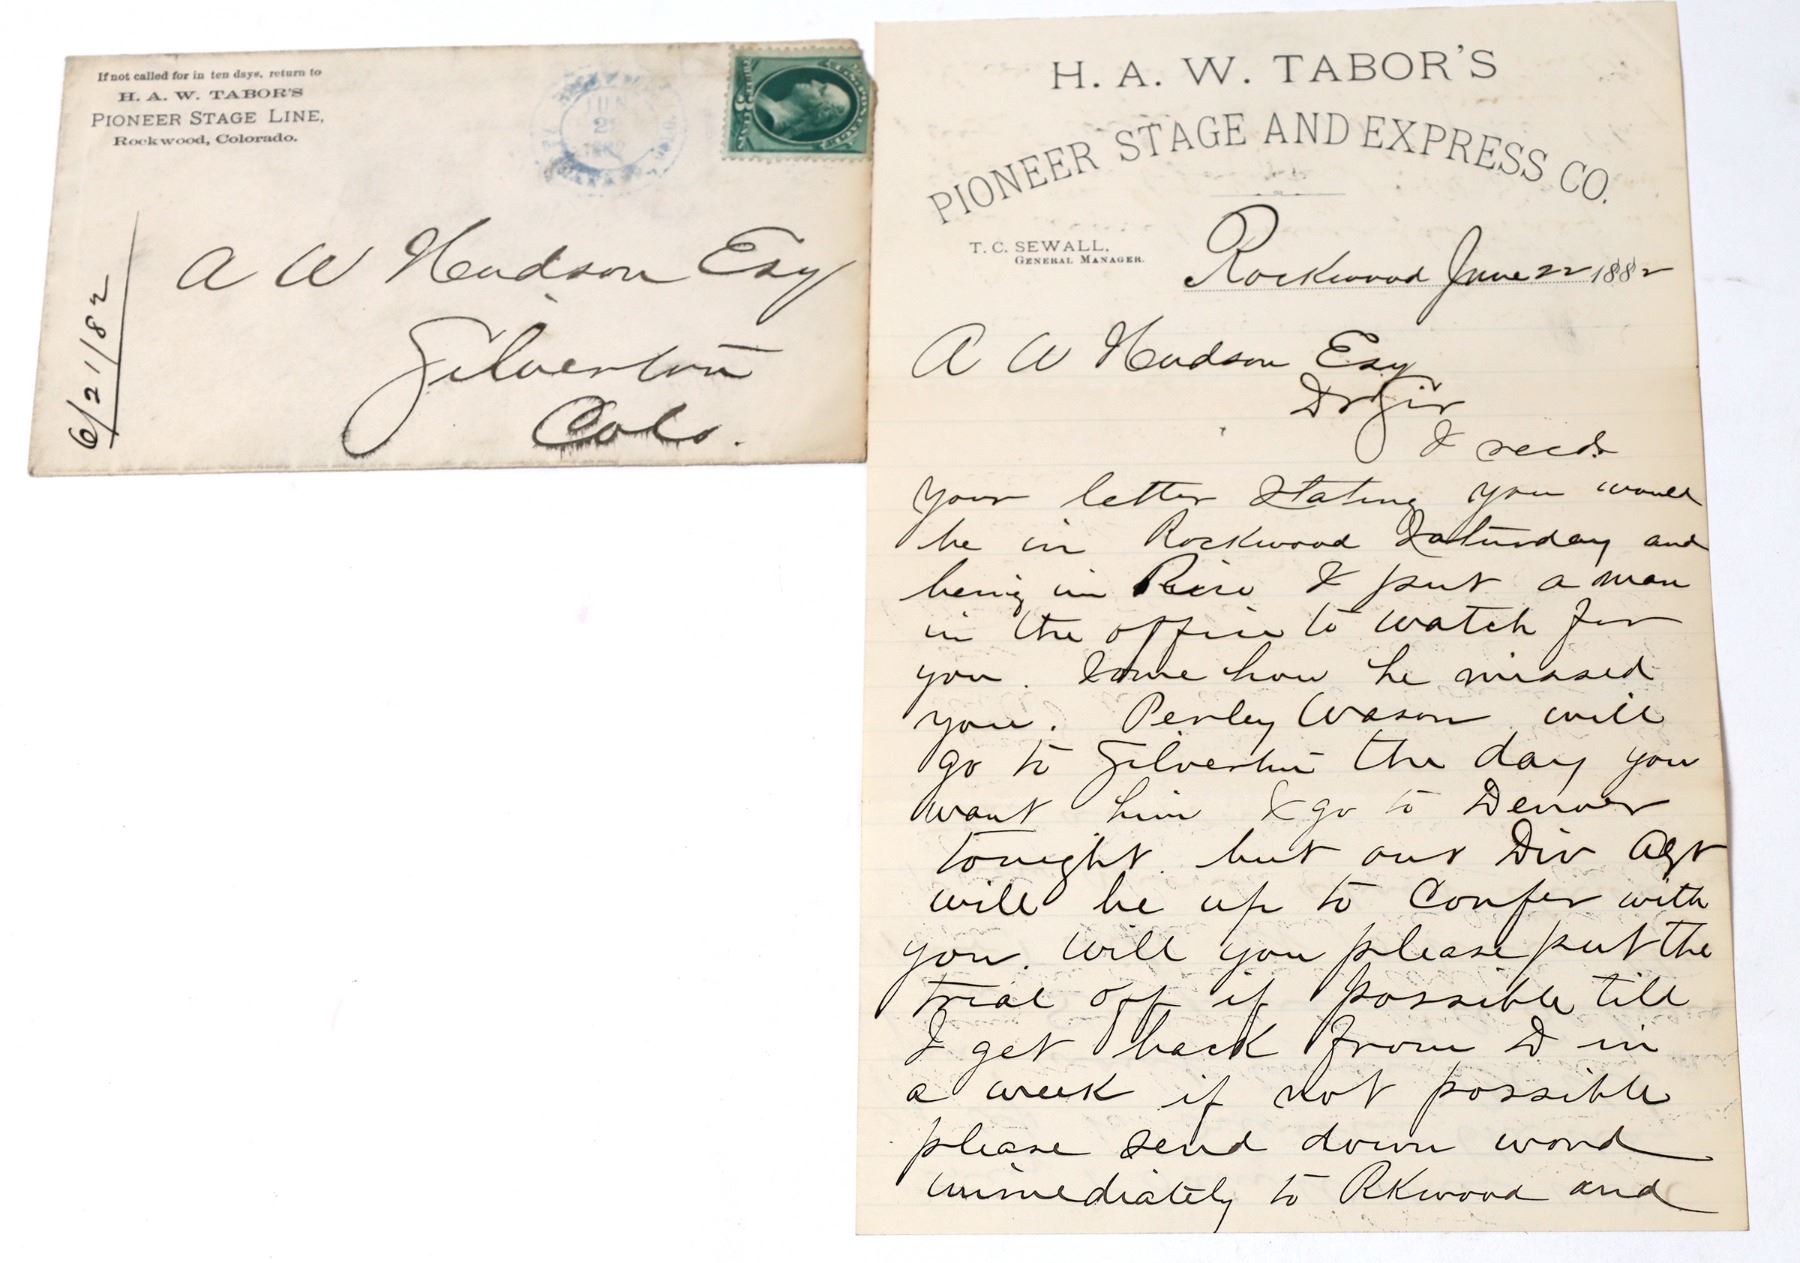 If not called for in ten days, return to
H. A. W. TABOR'S
PIONEER STAGE LINE,
Rockwood, Colorado.
JUN
1882
A W Hudson Esq
Silverton
Colo.
6/21/82
H. A. W. TABOR'S
PIONEER STAGE AND EXPRESS CO.
T. C. SEWALL,
GENERAL MANAGER.
Rockwood June 22 1882
A W Hudson Esq
Dr Sir
I recd.
your letter stating you would
be in Rockwood Saturday and
being in Rico I put a man
in the office to watch for
you. Some how he missed
you. Perley Wason will
go to Silverton the day you
want him I go to Denver
tonight. but our Div Agt
will be up to Confer with
you. Will you please put the
trial off if possible till
I get back from D in
a week if not possible
please send down word
immediately to Rkwood and